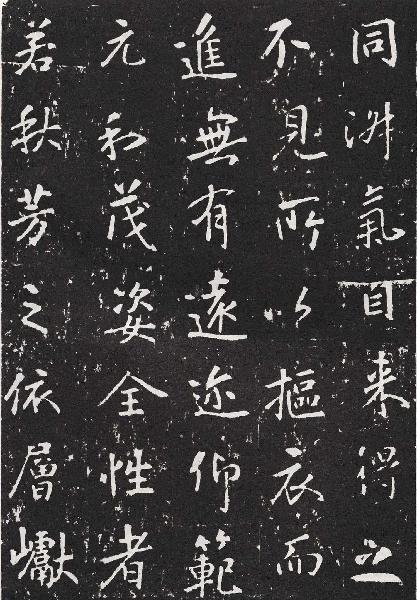 同氣自來得之
不見所以摳衣而
進無有遠迩仰範
元和茂姿全性者
若秋芳之依層巘